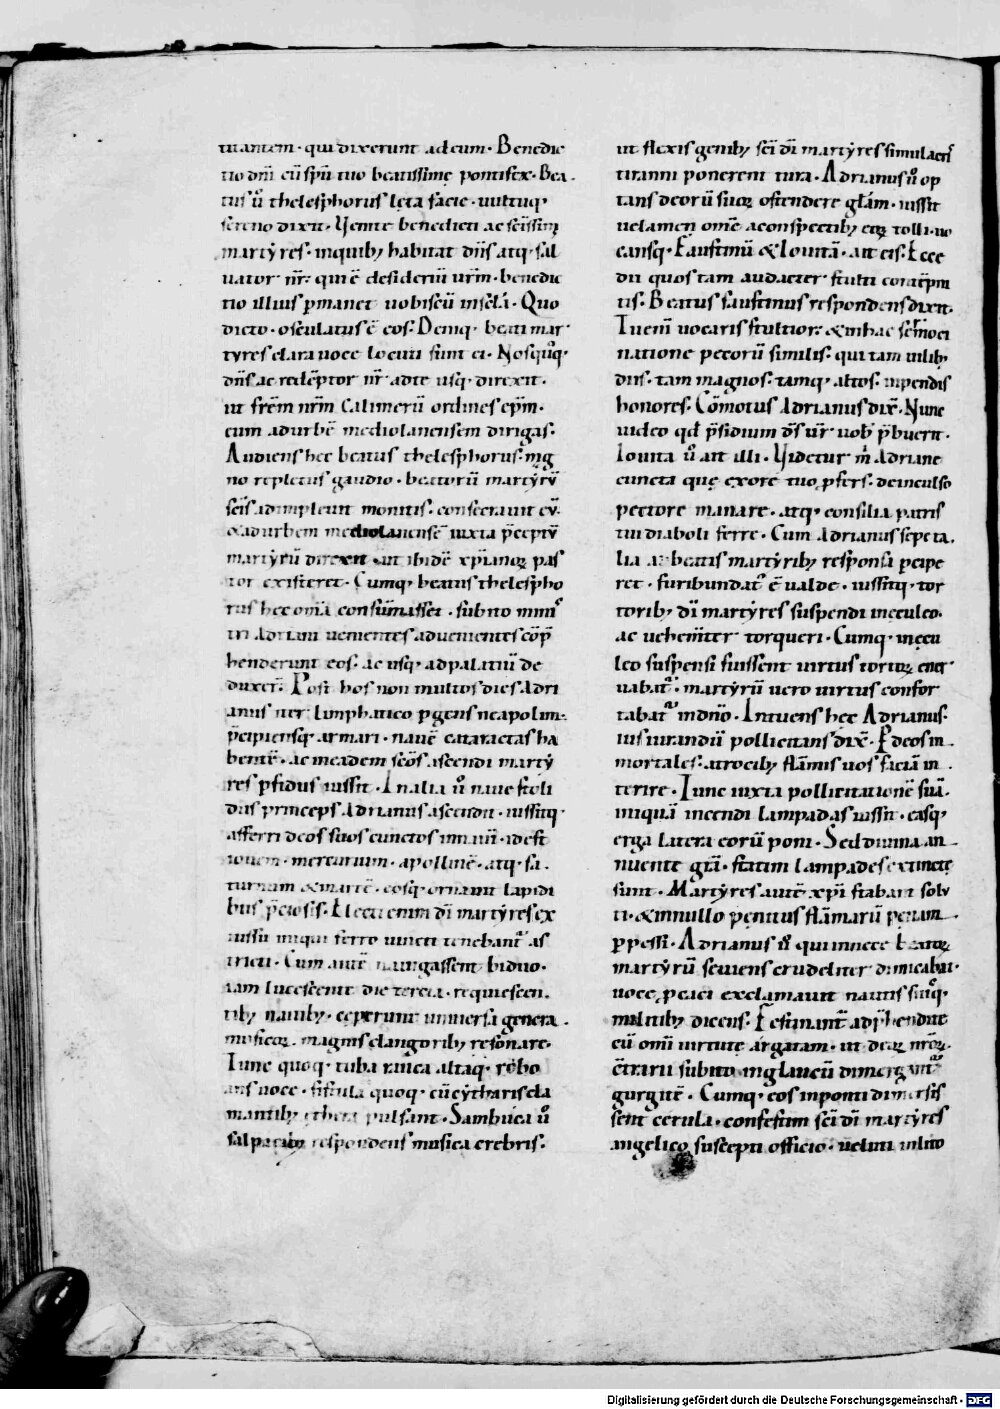 tuantem · qui dixerunt ad eum · Benedic
tio dnī cū spū tuo beatissime pontifex · Bea
tus ů thelesphorus lęta facie · uultuq;
sereno dixit · Venite benedicti ac scīssimi
martẏres · in quib; habitat dn̄s atq; sal
uator nr̄ · qui ē desideriū urm̄ · benedic
tio illius ꝑmanet uobiscū in sc̄la · Quo
dicto · osculatus ē eos · Deniq; beati mar
tẏres clara uoce locuti sunt ei · Nosquoq;
dn̄s ac redēptor nr̄ ad te usq; direxit ·
ut frēm nrm̄ Calimerū ordines ep̄m ·
eum ad urbē mediolanensem dirigas ·
Audiens hec beatus thelesphorus · mag
no repletus gaudio · beatorū martẏrū
scīs adimpleuit monitis · consecrauit eū
& ad urbem mediolanensē iuxta p̄ceptū
martẏrū direxit · ut ibidē xp̄ianoꝝ pas
tor existeret · Cumq; beatus thelespho
rus hec omīa consūmasset · subito minis
tri Adriani uenientes aduenientes cōp̄
henderunt eos · ac usq; ad palatiū de
duxer̄ · Post hos non multos dies Adri
anus iter limphatico ꝑgens neapolim ·
p̄cipiensq; armari · nauē cataractas ha
bentē · ac in eadem scōs ascendi martẏ
res ꝑfidus iussit · In alia ů naue stoli
dus princeps Adrianus ascendit · iussitq;
afferri deos suos cunctos in nauī · idest
iouem · mercurium · apollinē · atq; sa
turnum & martē · eosq; ornauit lapidi
bus p̄ciosis · Electi enim dī martẏres ex
iussu iniqui ferro uincti tenebant as
tricti · Cum autē nauigassent biduo ·
iam lucescente die tercia · requiescen
tib; nautib; · ceperunt uniuersa genera
musicoꝝ · magnis clangorib; resōnare ·
Tunc quoq; tuba rauca altaq; rebo
ans uoce · fistula quoq; cū cẏtharis cla
mantib; ethera pulsant · Sambuca ů
salpacium respondens musica crebris ·
ut flexis genib; scī dī martẏres simulacris
tiranni ponerent tura · Adrianus ů op
tans deorū suoꝝ ostendere glām · iussit
uelamen omē a conspectib; eoꝝ tolli · uo
cansq; Faustinū & Iouitā · ait eis · Ecce
dii quos tam audacter stulti contēpni
tis · Beatus faustinus respondens dixit ·
Tu enim uocaris stultior · & in hac sermoci
natione pecorū similis · qui tam uilib;
diis · tam magnos · tamq; altos · inpendis
honores · Cōmotus Adrianus dix̄ · Nunc
uideo qd p̄sidium ds̄ ur̄ uob p̄buerit ·
Iouita ů ait illi · Videtur m̄ Adriane
cuncta que ex ore tuo ꝓfers · de inculso
pectore manare · atq; consilia patris
tui diaboli ferre · Cum Adrianus sepe ta
lia a beatis martyrib; responsa ꝑcipe
ret · furibundat ē ualde · iussitq; tor
torib; dī martẏres suspendi in eculeo ·
ac uehemēter torqueri · Cumq; in ecu
leo suspensi fuissent uirtus tortoꝝ ener
uabat · martẏrū uero uirtus confor
tabat in dn̄o · Intuens hec Adrianus ·
ius iurandū pollicitans dix̄ · P deos in
mortales · atrocib; flāmis uos faciā in
terire · Tunc iuxta pollicitationē suā ·
iniquā incendi lampadas iussit · easq;
erga latera eorū poni · Sed diuina an
nuente grā · statim lampades extincte
sunt · Martẏres autē xp̄i stabant solu
ti · & in nullo penitus flāmarū penam
ꝑpessi · Adrianus ů qui in nece beatoꝝ
martẏrū seuiens crudeliter dimicabat ·
uoce ꝓcaci exclamauit nautis suisq;
militib; dicens · Festinant adp̄hendite
eū omī uirtute argatam · ut deoꝝ nr̄oꝝ
cōtrarii subito in glaucū dimergant
gurgitē · Cumq; eos in ponti dimersis
sent cerula · confestim scī dī martẏres
angelico suscepti officio · uelut in lito